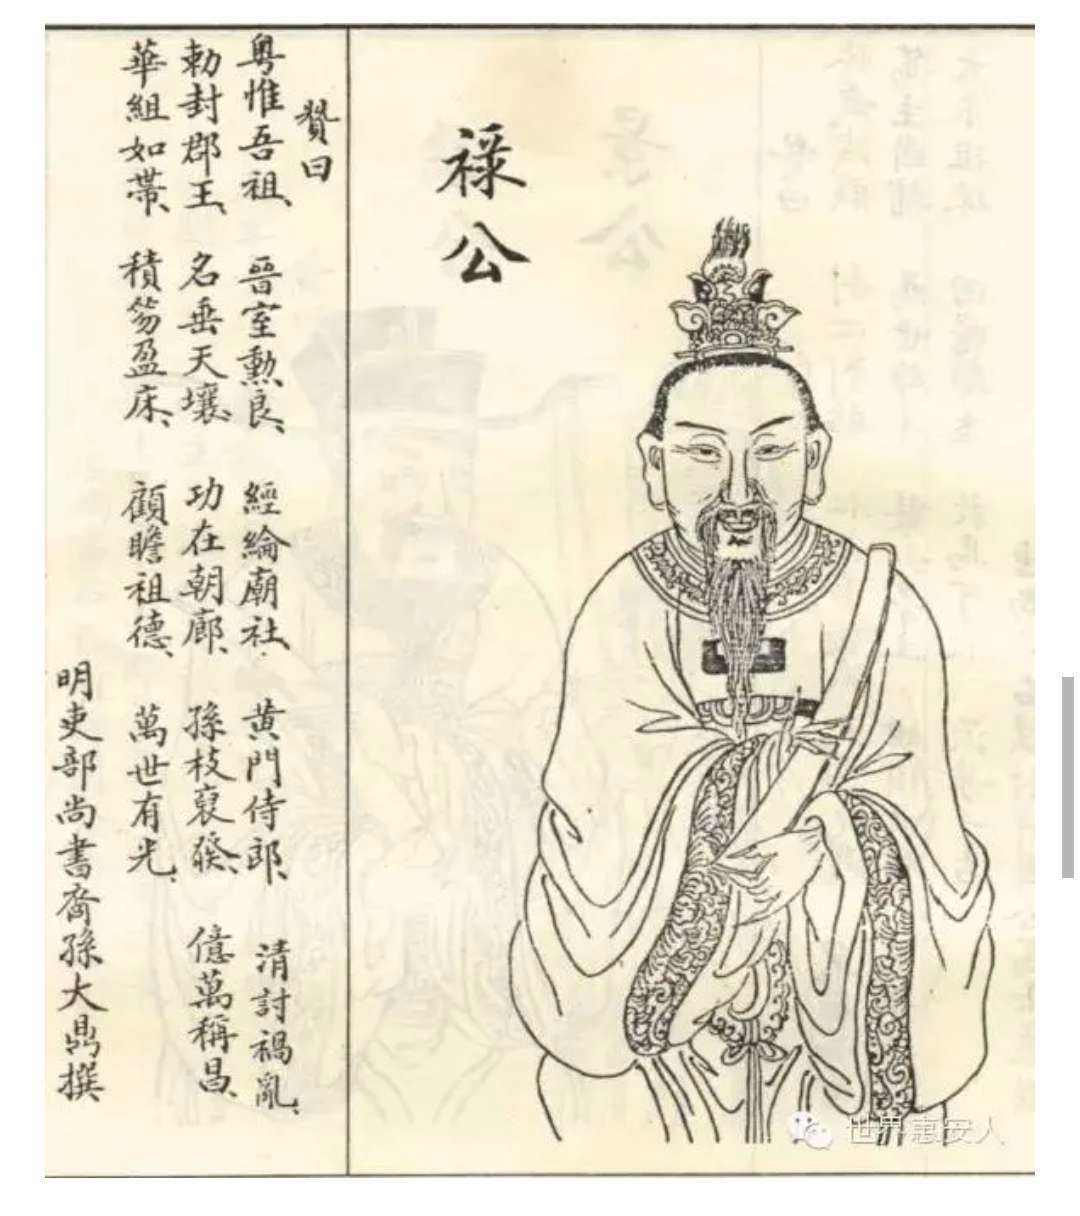 禄公
贊曰
粤惟吾祖、晉室勲良、經綸廟社、黄門侍郎、清討禍亂、
勅封郡王、名垂天壤、功在朝廊、孫枝裒發、億萬稱昌、
華組如帶、積笏盈床、顧瞻祖德、萬世有光、
明吏部尚書裔孫大鼎撰
世界惠安人